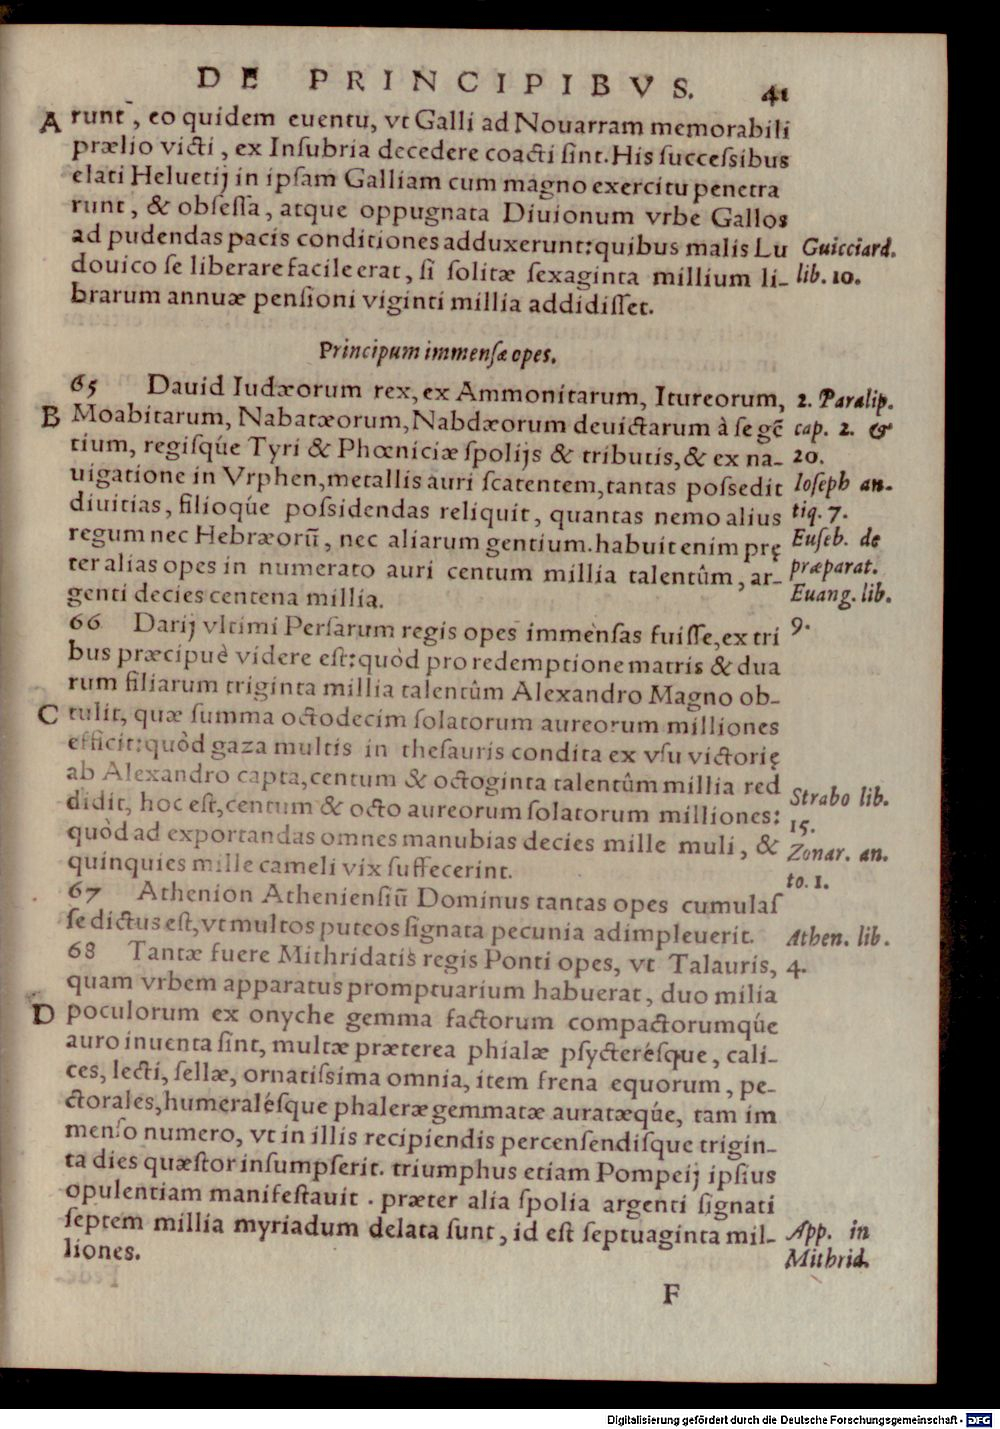 DE PRINCIPIBVS. 41
A runt, eo quidem euentu, vt Galli ad Nouarram memorabili
prælio victi, ex Inſubria decedere coacti ſint. His ſucceſsibus
elati Heluetij in ipſam Galliam cum magno exercitu penetra
runt, & obſeſſa, atque oppugnata Diuionum vrbe Gallos
ad pudendas pacis conditiones adduxerunt: quibus malis Lu Guicciard.
douico ſe liberare facile erat, ſi ſolitæ ſexaginta millium li- lib. 10.
brarum annuæ penſioni viginti millia addidiſſet.
Principum immenſæ opes.
65 Dauid Iudæorum rex, ex Ammonitarum, Itureorum, 2. Paralip.
B Moabitarum, Nabatæorum, Nabdæorum deuictarum à ſe gẽ cap. 2. &
tium, regiſqúe Tyri & Phœniciæ ſpolijs & tributis, & ex na- 20.
uigatione in Vrphen, metallis auri ſcatentem, tantas poſsedit Ioſeph an-
diuitias, filioqúe poſsidendas reliquit, quantas nemo alius tiq. 7.
regum nec Hebræorũ, nec aliarum gentium. habuit enim prę Euſeb. de
ter alias opes in numerato auri centum millia talentûm, ar- præparat.
genti decies centena millia. Euang. lib.
66 Darij vltimi Perſarum regis opes immenſas fuiſſe, ex tri 9.
bus præcipuè videre eſt: quòd pro redemptione matris & dua
rum filiarum triginta millia talentûm Alexandro Magno ob-
C tulit, quæ ſumma octodecim ſolatorum aureorum milliones
efficit: quòd gaza multis in theſauris condita ex vſu victorię
ab Alexandro capta, centum & octoginta talentûm millia red
didit, hoc eſt, centum & octo aureorum ſolatorum milliones: Strabo lib.
15.
quòd ad exportandas omnes manubias decies mille muli, & Zonar. an.
quinquies mille cameli vix ſuffecerint. to. 1.
67 Athenion Athenienſiũ Dominus tantas opes cumulaſ
ſe dictus eſt, vt multos puteos ſignata pecunia adimpleuerit. Athen. lib.
68 Tantæ fuere Mithridatis regis Ponti opes, vt Talauris, 4.
quam vrbem apparatus promptuarium habuerat, duo milia
D poculorum ex onyche gemma factorum compactorumqúe
auro inuenta ſint, multæ præterea phialæ pſycteréſque, cali-
ces, lecti, ſellæ, ornatiſsima omnia, item frena equorum, pe-
ctorales, humeraléſque phaleræ gemmatæ auratæqúe, tam im
menſo numero, vt in illis recipiendis percenſendiſque trigin-
ta dies quæſtor inſumpſerit. triumphus etiam Pompeij ipſius
opulentiam manifeſtauit. præter alia ſpolia argenti ſignati
ſeptem millia myriadum delata ſunt, id eſt ſeptuaginta mil- App. in
liones. Mithrid.
F
Digitalisierung gefördert durch die Deutsche Forschungsgemeinschaft - DFG